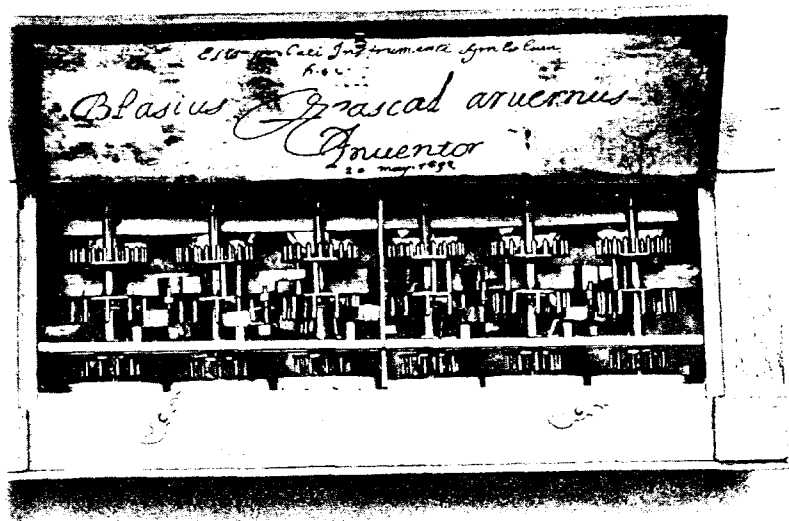 Esto probati Instrumenti Symbolum
hoc
Blasius Pascal aruernus
Inuentor
20 may. 1652